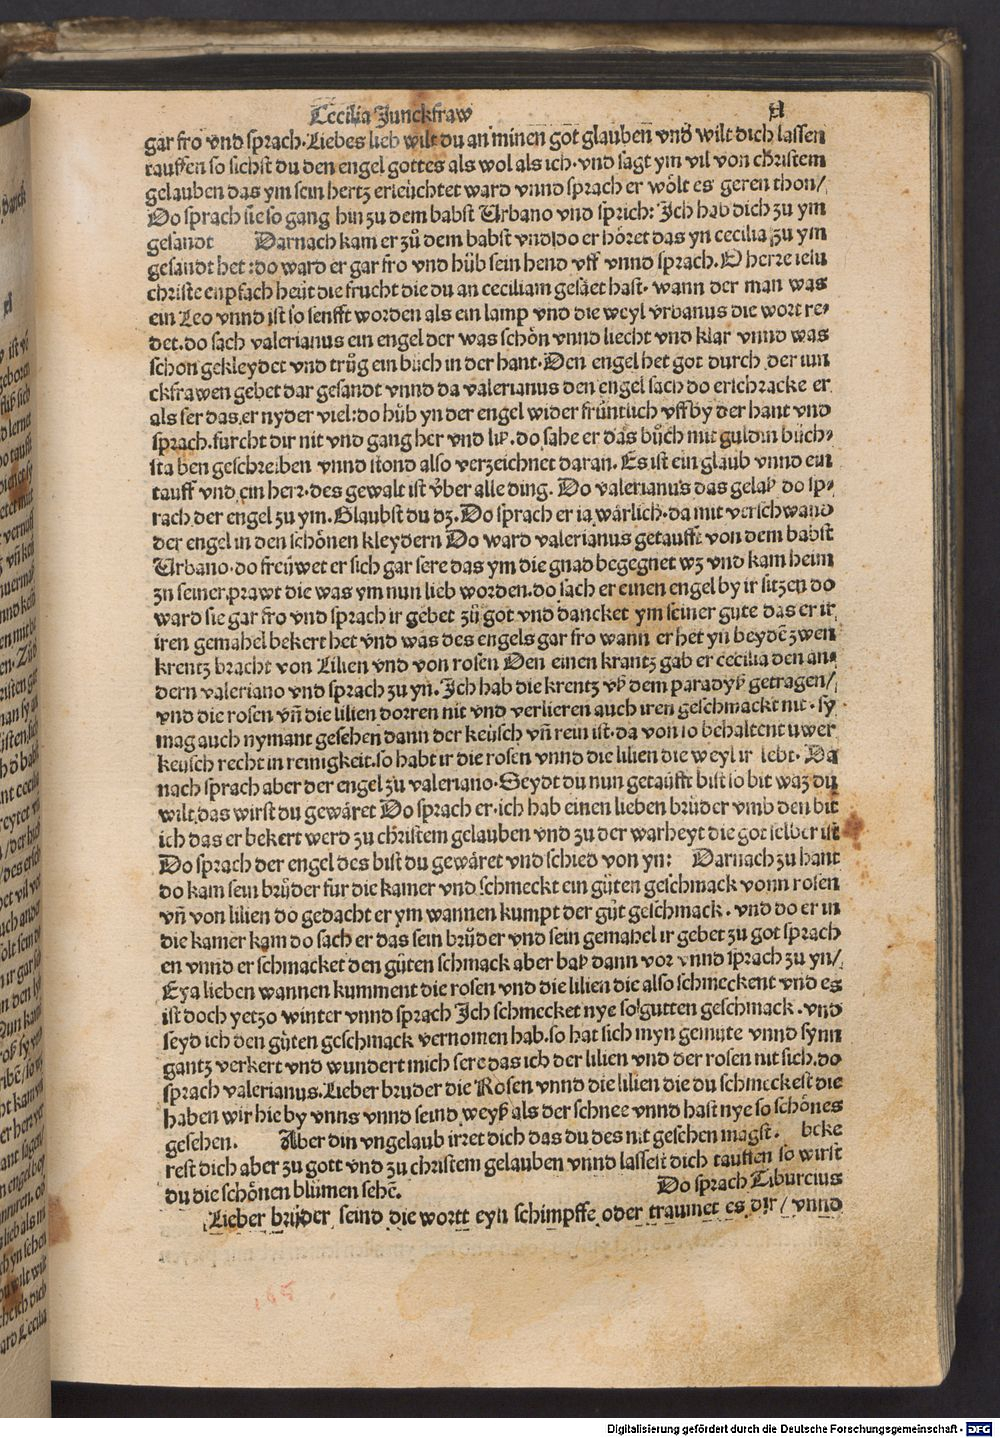 Cecilia Junckfraw
gar fro vnd sprach. Liebes lieb wilt du an minen got glauben vnd wilt dich lassen
tauffen so sichst du den engel gottes als wol als ich. vnd sagt ym vil von christem
gelauben das ym sein hertz erleüchtet ward vnnd sprach er wölt es geren thon/
Do sprach sie so gang hin zu dem babst Urbano vnd sprich: Ich hab dich zu ym
gesandt Darnach kam er zů dem babst vnd do er höret das yn cecilia zu ym
gesandt het: do ward er gar fro vnd hůb sein hend vff vnnd sprach. O herre iesu
christe enpfach heüt die frucht die du an ceciliam gesäet hast. wann der man was
ein Leo vnnd ist so senfft worden als ein lamp vnd die weyl vrbanus die wort re⸗
det. do sach valerianus ein engel der was schön vnnd liecht vnd klar vnnd was
schon gekleydet vnd trůg ein bůch in der hant. Den engel het got durch der iun
ckfrawen gebet dar gesandt vnnd da valerianus den engel sach do erschracke er
als ser das er nyder viel: do hůb yn der engel wider früntlich vff by der hant vnd
sprach. furcht dir nit vnd gang her vnd liß. do sahe er das bůch mit guldin bůch⸗
sta ben geschreiben vnnd stond also verzeichnet daran. Es ist ein glaub vnnd ein
tauff vnd ein herr. des gewalt ist v̈ber alle ding. Do valerianus das gelaß do sp⸗
rach der engel zu ym. Glaubst du dz. Do sprach er ia wärlich. da mit verschwand
der engel in den schönen kleydern Do ward valerianus getaufft von dem babst
Urbano. do freüwet er sich gar sere das ym die gnad begegnet wz vnd kam heim
zu seiner prawt die was ym nun lieb worden. do sach er einen engel by ir sitzen do
ward sie gar fro vnd sprach ir gebet zů got vnd dancket ym seiner gute das er ir
iren gemahel bekert het vnd was des engels gar fro wann er het yn beydē zwen
krentz bracht von Lilien vnd von rosen Den einen krantz gab er cecilia den an⸗
dern valeriano vnd sprach zu yn. Ich hab die krentz vß dem paradyß getragen/
vnd die rosen vñ die lilien dorren nit vnd verlieren auch iren geschmackt nit. sy
mag auch nymant gesehen dann der keüsch vñ rein ist. da von so behaltent uwer
keüsch recht in reinigkeit. so habt ir die rosen vnnd die lilien die weyl ir lebt. Da
nach sprach aber der engel zů valeriano. Seydt du nun getaüfft bist so bit waz du
wilt das wirst du gewäret Do sprach er. ich hab einen lieben brůder vmb den bit
ich das er bekert werd zu christem gelauben vnd zu der warheyt die got selber ist
Do sprach der engel des bist du gewäret vnd schied von yn: Darnach zu hant
do kam sein brůder fur die kamer vnd schmeckt ein gůten geschmack vonn rosen
vñ von lilien do gedacht er ym wannen kumpt der gůt geschmack. vnd do er in
die kamer kam do sach er das sein brůder vnd sein gemahel ir gebet zu got sprach
en vnnd er schmacket den gůten schmack aber baß dann vor vnnd sprach zu yn/
Eya lieben wannen kumment die rosen vnd die lilien die also schmeckent vnd es
ist doch yetzo winter vnnd sprach Ich schmecket nye so gutten geschmack. vnd
seyd ich den gůten geschmack vernomen hab. so hat sich myn gemute vnnd synn
gantz verkert vnd wundert mich sere das ich der lilien vnd der rosen nit sich. do
sprach valerianus. Lieber bruder die Rosen vnnd die lilien die du schmeckest die
haben wir hie by vnns vnnd seind weyß als der schnee vnnd hast nye so schönes
gesehen. Aber din vngelaub irret dich das du des nit gesehen magst. beke
rest dich aber zu gott vnd zu christem gelauben vnnd lassest dich tauffen so wirst
du die schönen blůmen sehē. Do sprach Tiburcius
Lieber brůder seind die wortt eyn schimpffe oder traumet es dir/ vnnd
Digitalisierung gefördert durch die Deutsche Forschungsgemeinschaft - DFG